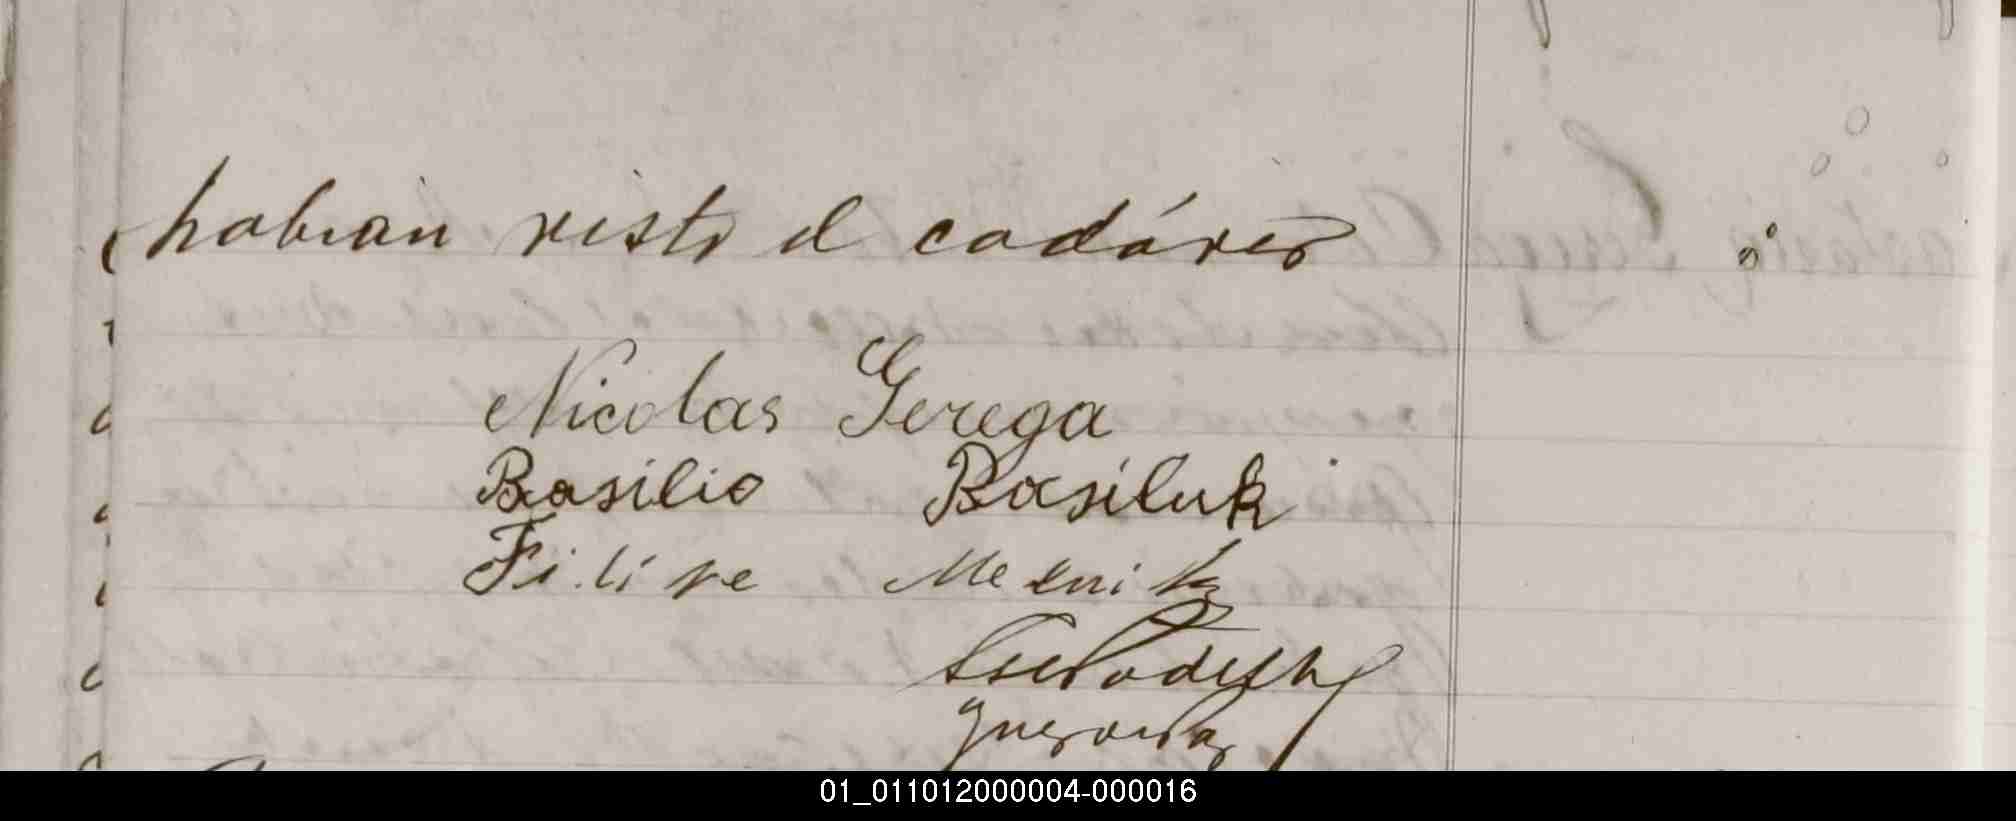 habian visto el cadáver
Nicolas Gerega
Basilio Basiluk
Filipe Melnik
01_011012000004-000016